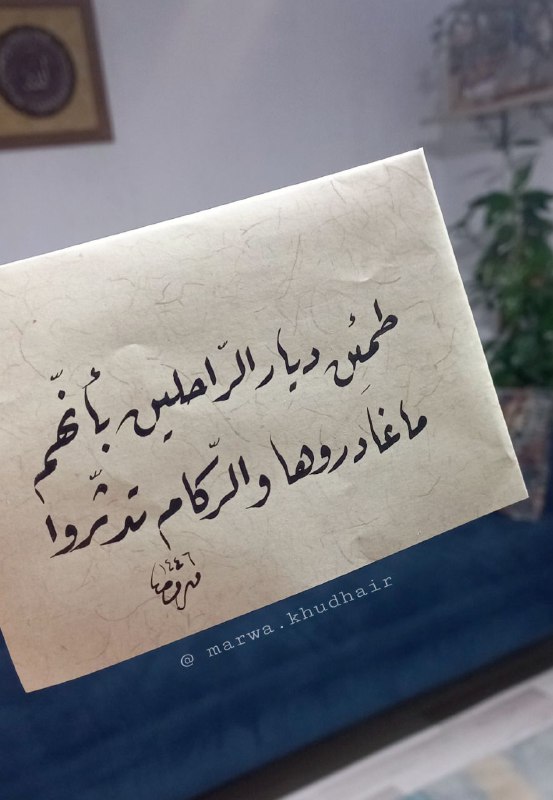 طمئِن ديار الرّاحلين بأنّهم
ما غادروها والرّكام تدثّروا
١٤٤٦
@ marwa.khudhair